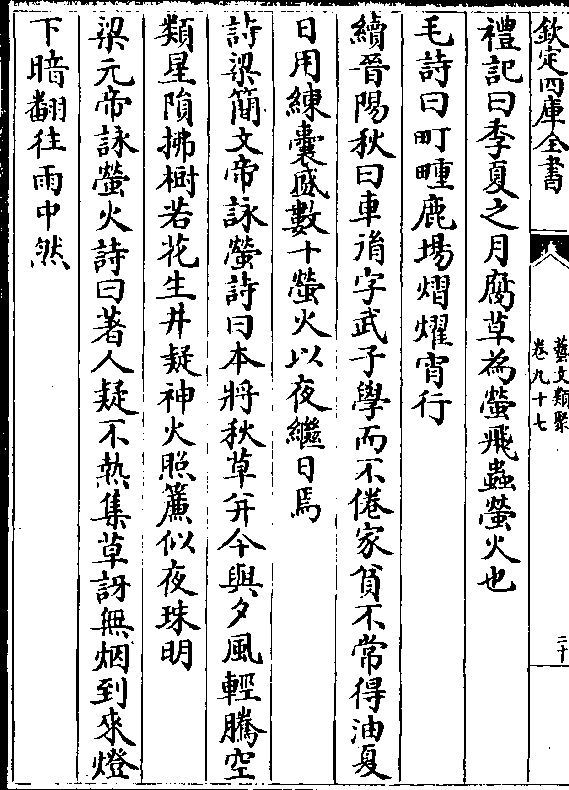 欽定四庫全書
藝文類聚
卷九十七
二十
禮記曰季夏之月腐草為螢飛蟲螢火也
毛詩曰町畽鹿場熠燿宵行
續晉陽秋曰車𦙍字武子學而不倦家貧不常得油夏
日用練囊盛數十螢火以夜繼日焉
詩梁簡文帝詠螢詩曰本將秋草并今與夕風輕騰空
類星隕拂樹若花生井疑神火照簾似夜珠明
梁元帝詠螢火詩曰著人疑不熱集草訝無烟到來燈
下暗翻往雨中然